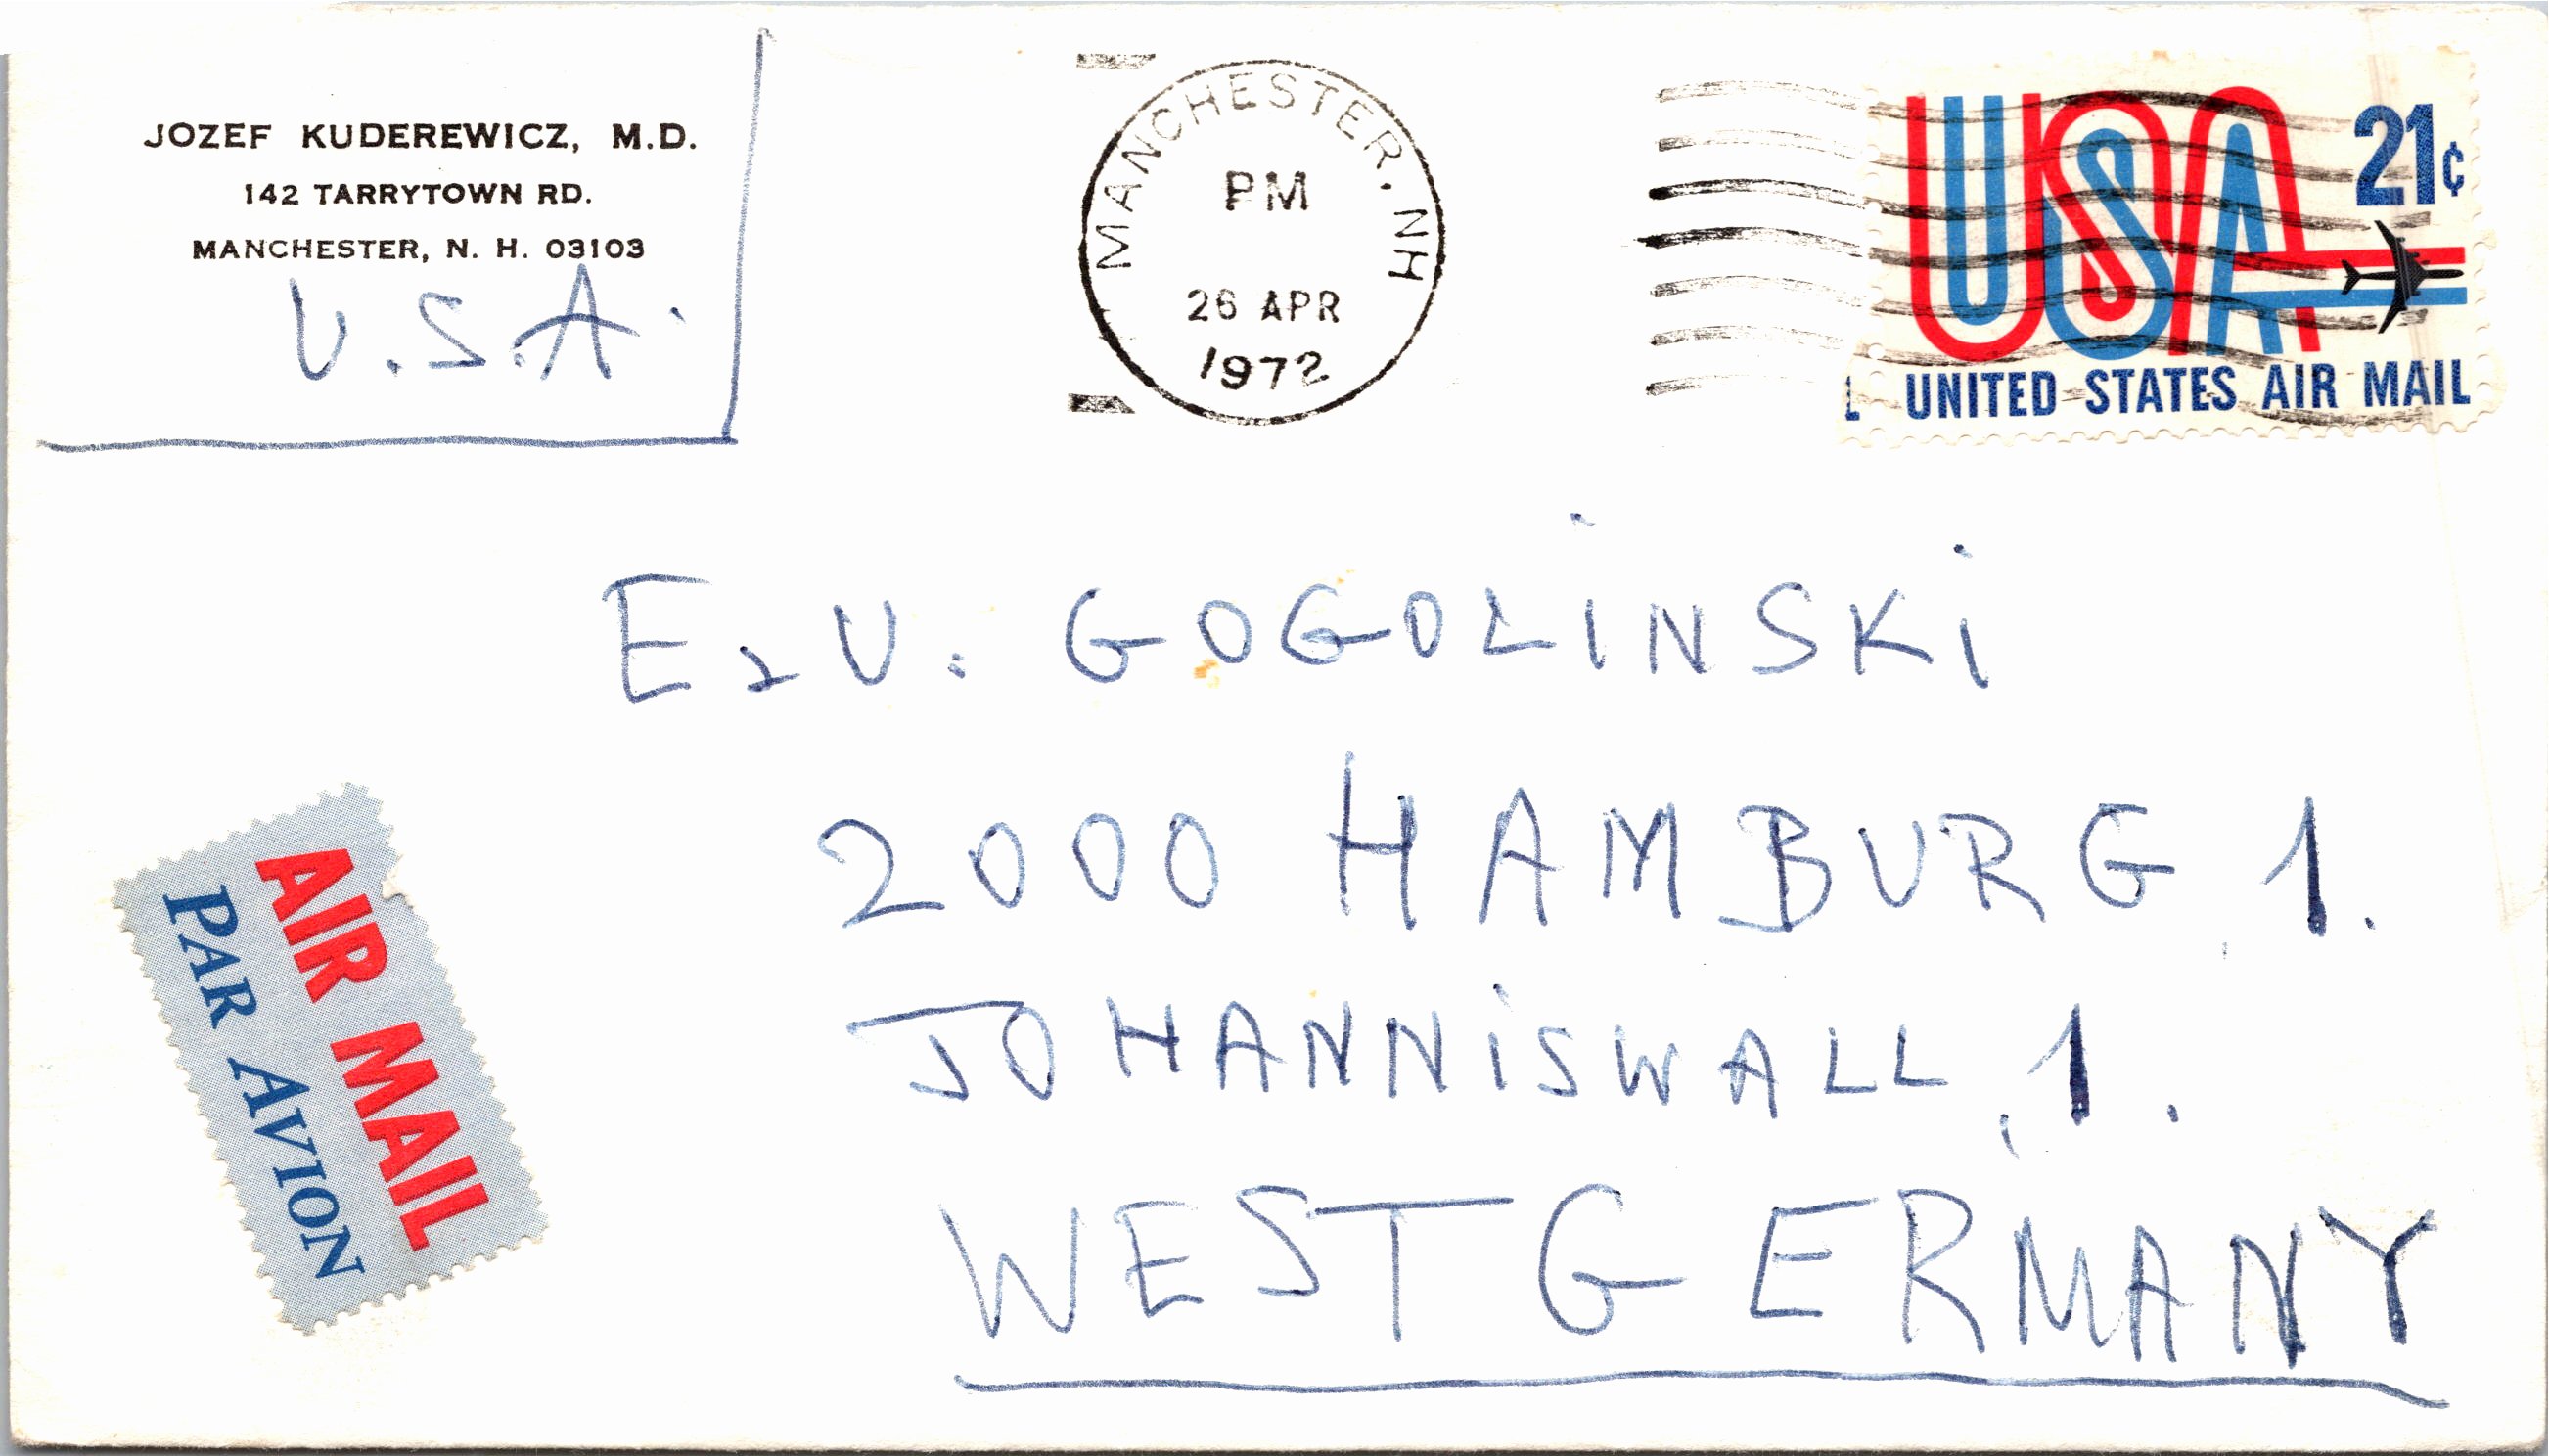 JOZEF KUDEREWICZ, M.D.
142 TARRYTOWN RD.
MANCHESTER, N. H. 03103
U.S.A.
MANCHESTER, NH
PM
26 APR
1972
USA
21¢
L UNITED STATES AIR MAIL
E. U. GOGOLINSKI
2000 HAMBURG 1.
JOHANNISWALL, 1.
WEST GERMANY
AIR MAIL
PAR AVION